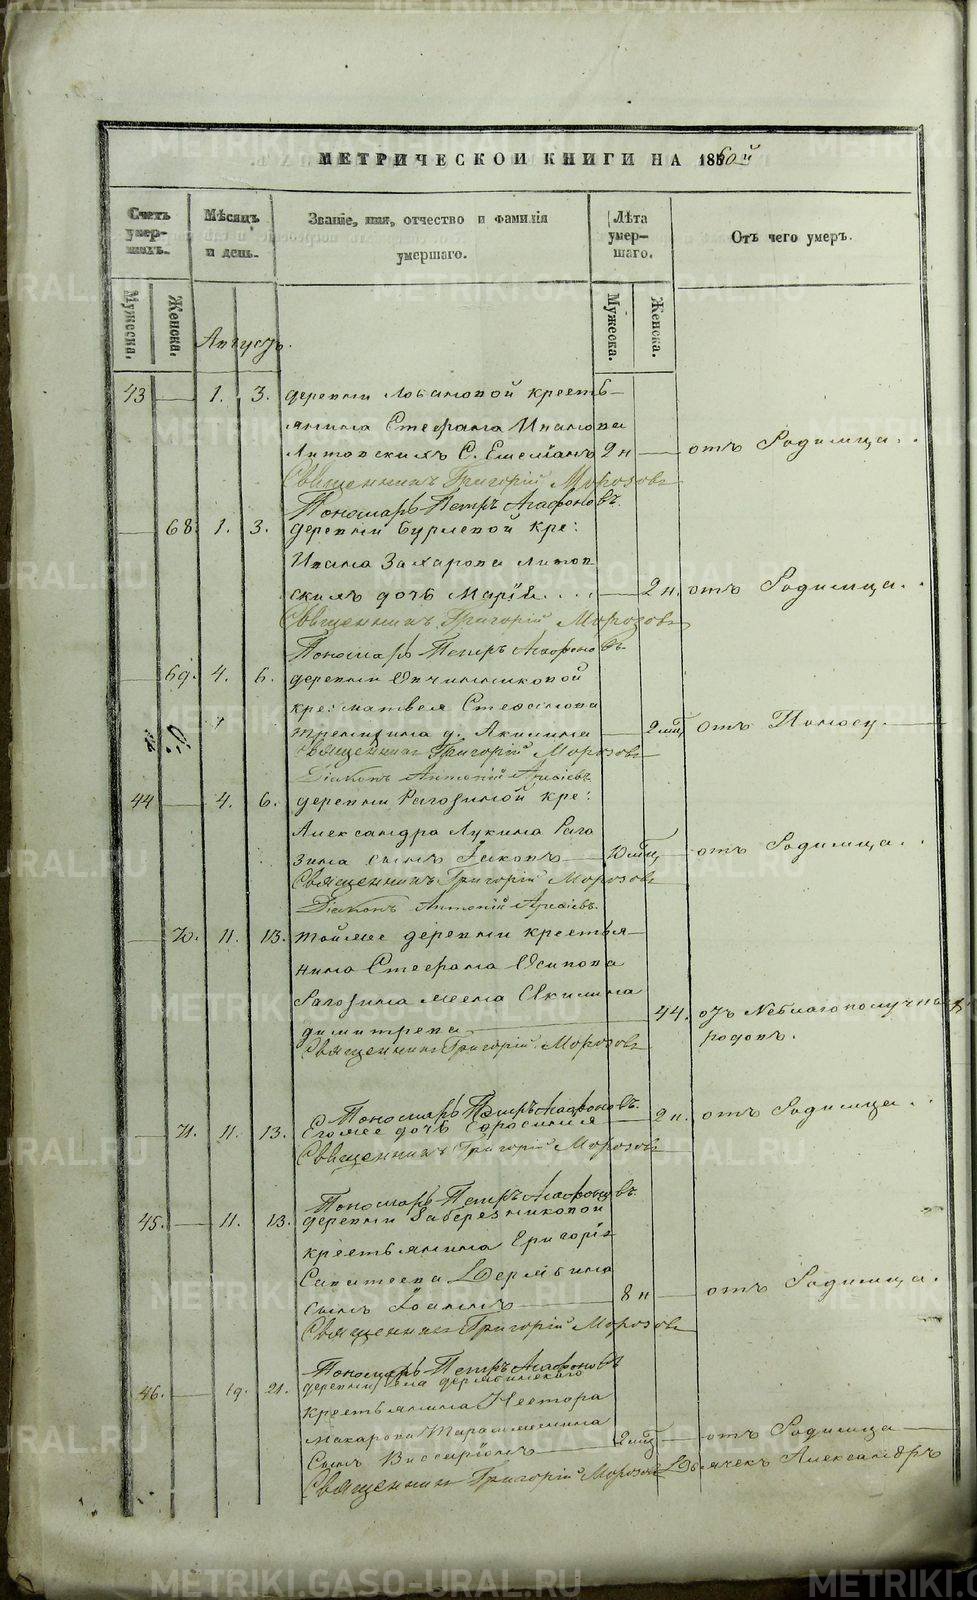 МЕТРИЧЕСКОЙ КНИГИ НА 1860й
Счетъ умер-шихъ.
Мѣсяцъ и день.
Званіе, имя, отчество и фамилія умершаго.
Лѣта умер-шаго.
Отъ чего умеръ.
Мужеска.
Женска.
Мужеска.
Женска.
Августъ.
43 1. 3. деревни Лобановой кресть-
янина Стефана Иванова
Литовскихъ С. Емеліанъ 2 н отъ Родимца.
Священникъ Григорій Морозовъ
Пономарь Петръ Агафоновъ
68. 1. 3. деревни Бурлевой кре:
Ивана Захарова Литов
скихъ дочь Марія 2 н. отъ Родимца.
Священникъ Григорій Морозовъ
Пономарь Петръ Агафоновъ
69. 4. 6. деревни Овчинниковой
кре: Матвея Стефанова
д. Акилина 2 мц отъ Поносу.
Священникъ Григорій Морозовъ
Діаконъ Антоній
44 4. 6. деревни Рагозиной кре:
Александра Лукина Раго
зина сынъ Іаковъ 10 мц отъ Родимца.
Священникъ Григорій Морозовъ
Діаконъ Антоній
70. 11. 13. тойже деревни крестья-
нина Стефана Осипова
Рагозина жена Акилина
Димитрева 44. отъ Неблагополучныхъ
родовъ.
Священникъ Григорій Морозовъ
Пономарь Петръ Агафоновъ.
71. 11. 13. Егоже дочь Ефросинія 2 н. отъ Родимца.
Священникъ Григорій Морозовъ
Пономарь Петръ Агафоновъ.
45. 11. 13. деревни Заберезниковой
крестьянина Григорія
Саватеева Дерябина
сынъ Іоаннъ 8 н отъ Родимца.
Священникъ Григорій Морозовъ
Пономарь Петръ Агафоновъ
46. 19. 21.
крестьянина Нестора
Макарова
сынъ Виссаріонъ 2 мц отъ Родимца
Священникъ Григорій Морозовъ Дьячекъ Александръ
METRIKI.GASO-URAL.RU